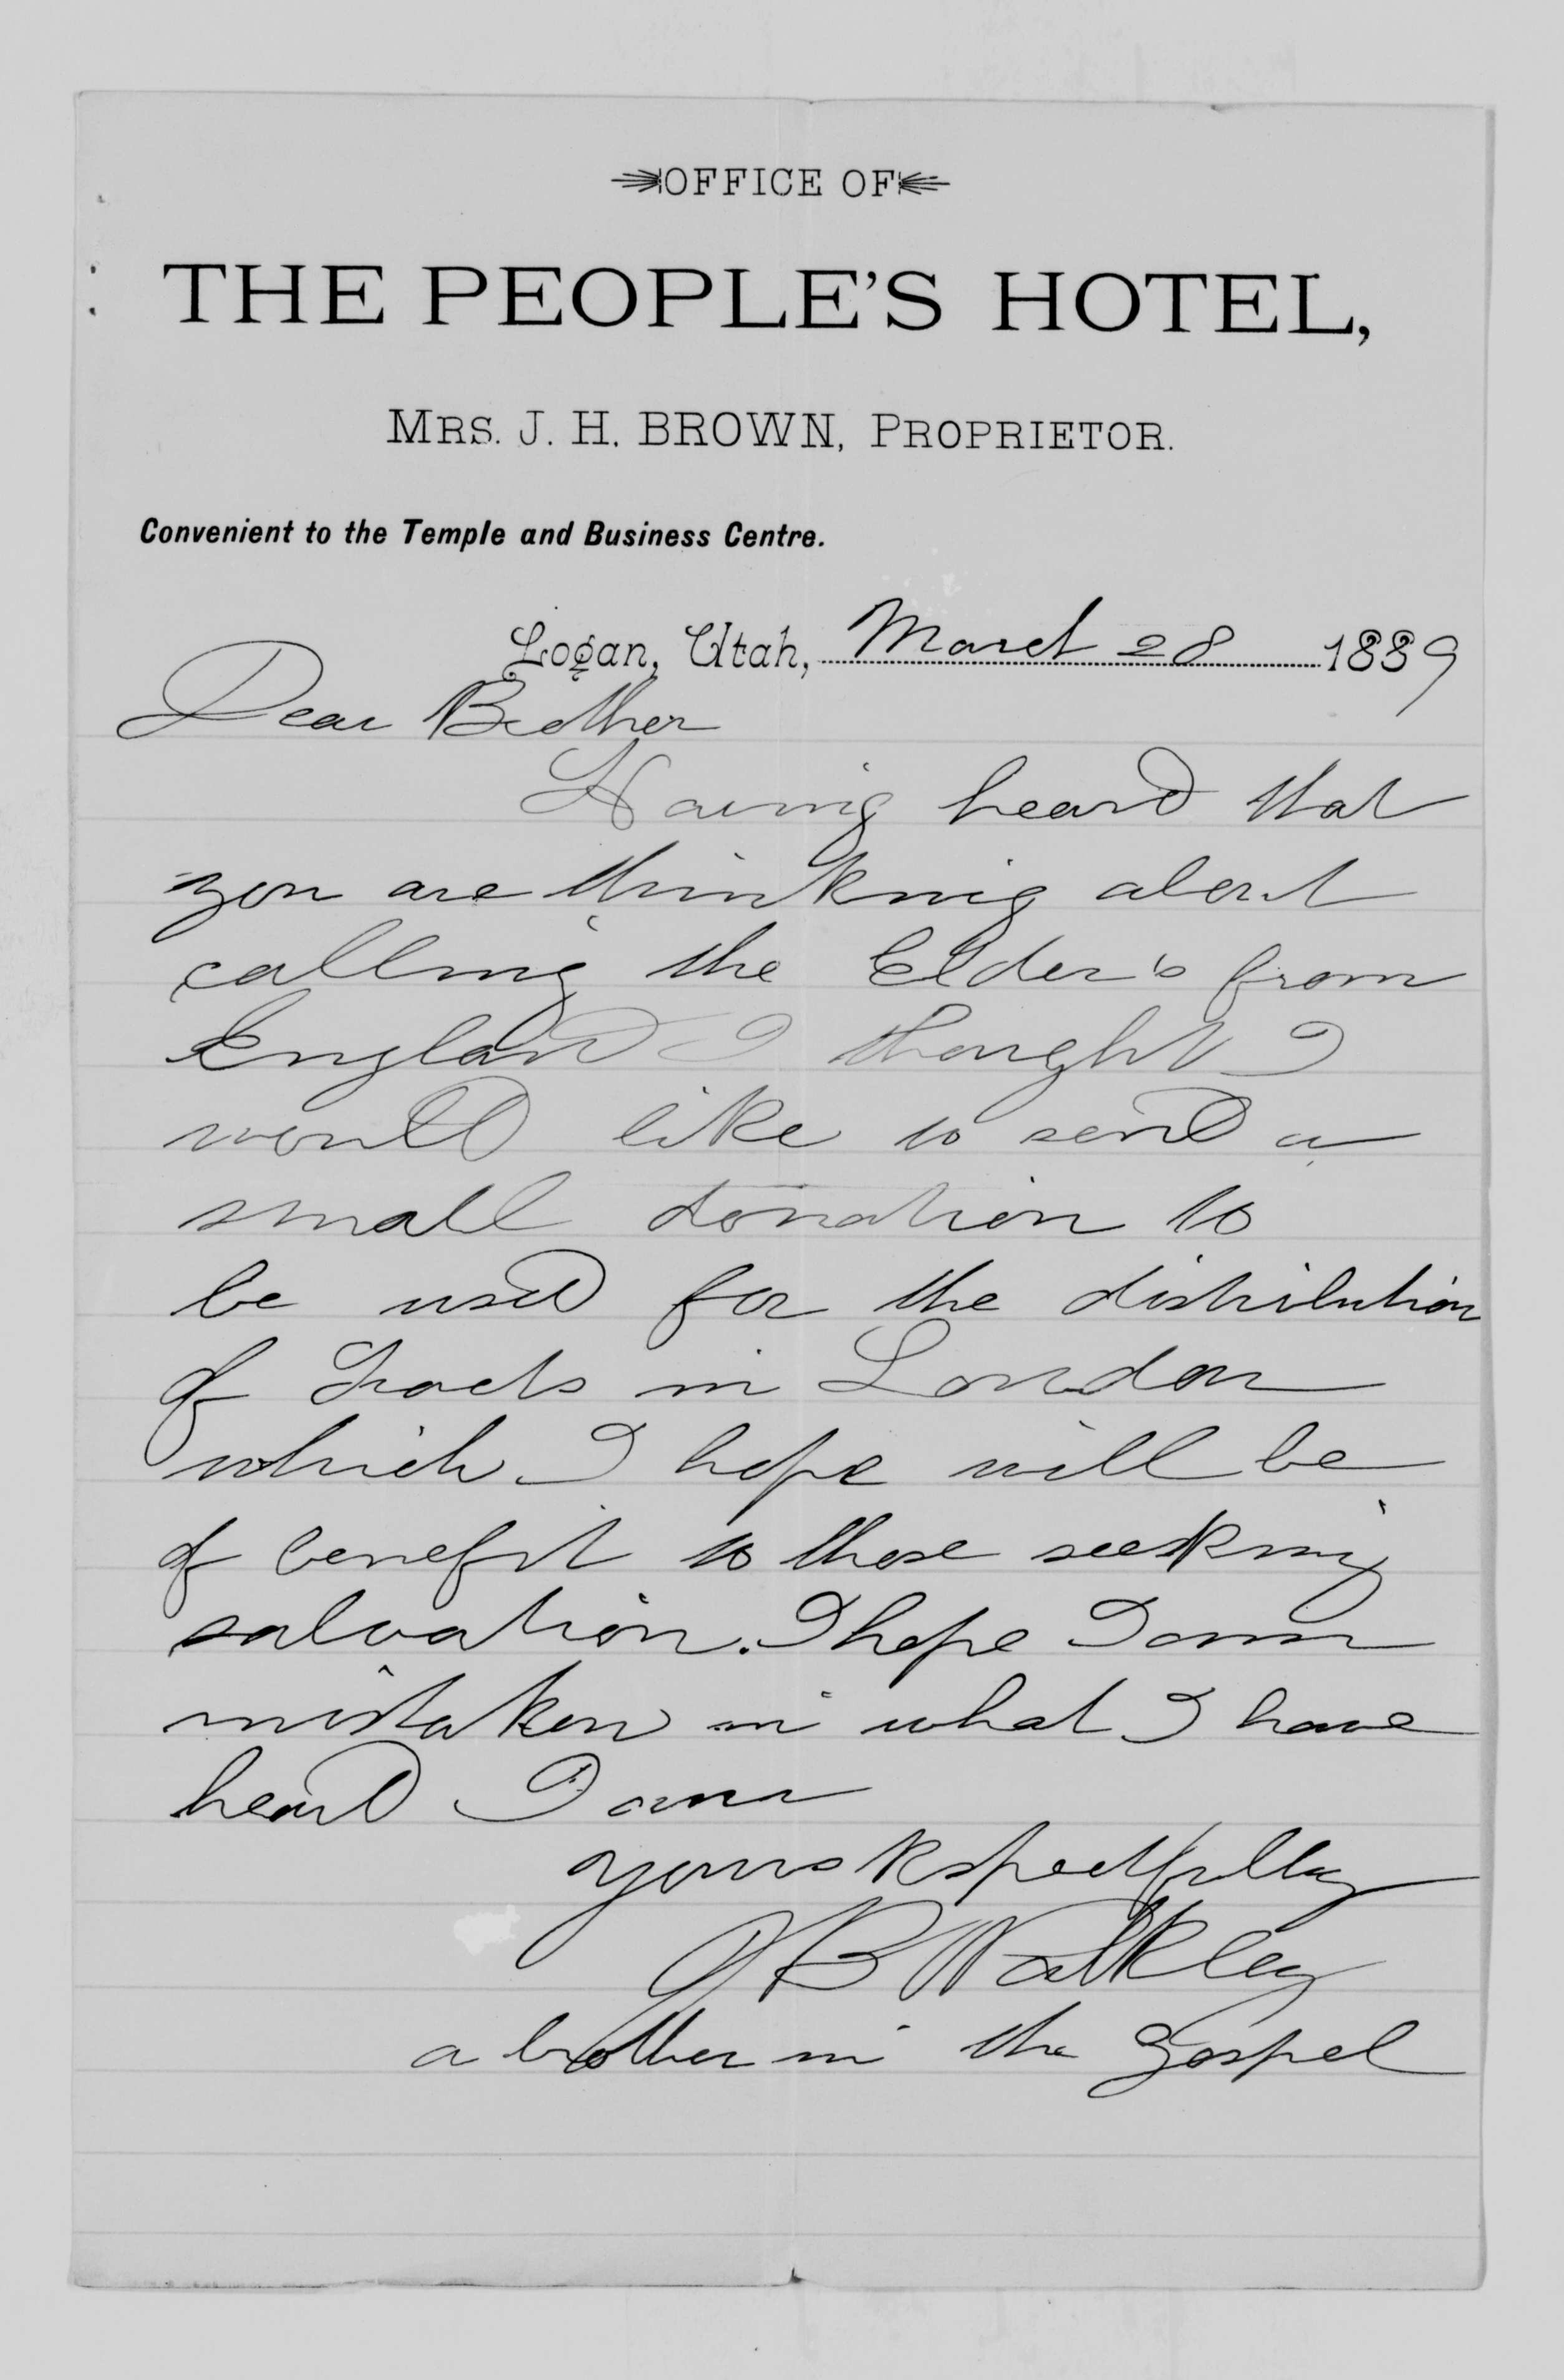 OFFICE OF
THE PEOPLE'S HOTEL,
MRS. J. H. BROWN, PROPRIETOR.
Convenient to the Temple and Business Centre.
Logan, Utah, March 28 1889
Dear Brother
Having heard that
you are thinking about
calling the Elder's from
England I thought I
would like to send a
small donation to
be used for the distribution
of Tracts in London
which I hope will be
of benefit to those seeking
salvation. I hope I am
mistaken in what I have
heard I am
yours Respectfully
J B Walkley
a brother in the Gospel